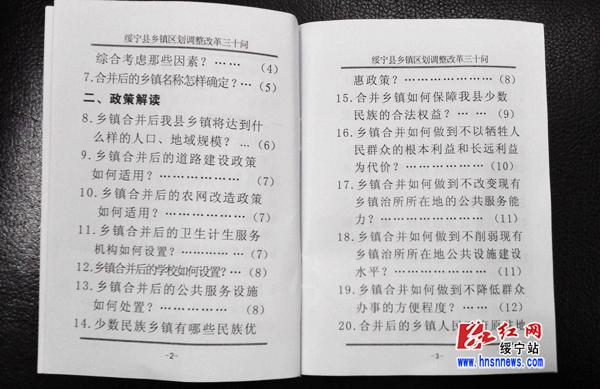 绥宁县乡镇区划调整改革三十问
综合考虑那些因素？……（4）
7.合并后的乡镇名称怎样确定？…（5）
二、政策解读
8.乡镇合并后我县乡镇将达到什
么样的人口、地域规模？…（6）
9.乡镇合并后的道路建设政策
如何适用？………………（7）
10.乡镇合并后的农网改造政策
如何适用？………………（7）
11.乡镇合并后的卫生计生服务
机构如何设置？…………（7）
12.乡镇合并后的学校如何设置？…（8）
13.乡镇合并后的公共服务设施
如何处置？………………（8）
14.少数民族乡镇有哪些民族优
-2-
绥宁县乡镇区划调整改革三十问
惠政策？…………………（8）
15.合并乡镇如何保障我县少数
民族的合法权益？……（9）
16.乡镇合并如何做到不以牺牲人
民群众的根本利益和长远利益
为代价？………………（10）
17.乡镇合并如何做到不改变现有
乡镇治所所在地的公共服务能
力？……………………（11）
18.乡镇合并如何做到不削弱现有
乡镇治所所在地公共设施建设
水平？…………………（11）
19.乡镇合并如何做到不降低群众
办事的方便程度？……（12）
20.合并后的乡镇人民
地
-3-
红网
绥宁站
www.hnsnnews.com